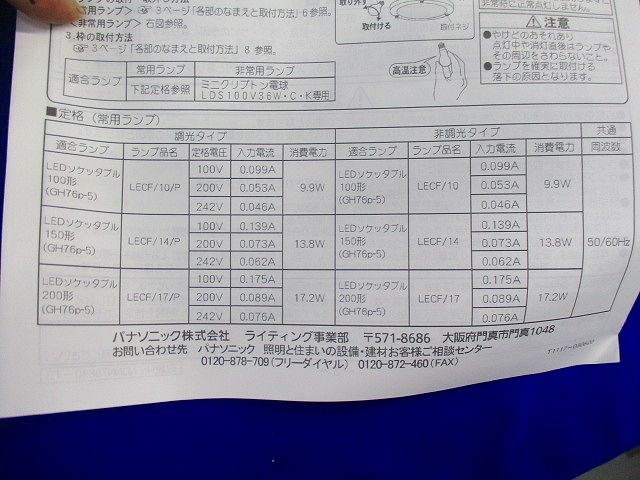 <常用ランプ> 3ページ「各部のなまえと取付方法」6参照。
<非常用ランプ> 右図参照。
3.枠の取付方法
3ページ「各部のなまえと取付方法」8 参照。
適合ランプ 常用ランプ 非常用ランプ
下記定格参照 ミニクリプトン電球
LDS100V36W・C・K専用
取付ける
取付ネジ
高温注意
注意
●やけどのおそれあり
点灯中や消灯直後はランプや
その周辺をさわらないこと。
●ランプを確実に取付ける
落下の原因となります。
■定格（常用ランプ）
調光タイプ 非調光タイプ 共通
適合ランプ ランプ品名 定格電圧 入力電流 消費電力 適合ランプ ランプ品名 入力電流 消費電力 周波数
LEDソケッタブル
100形
(GH76p-5) LECF/10/P 100V 0.099A 9.9W LEDソケッタブル
100形
(GH76p-5) LECF/10 0.099A 9.9W 50/60Hz
200V 0.053A 0.053A
242V 0.046A 0.046A
LEDソケッタブル
150形
(GH76p-5) LECF/14/P 100V 0.139A 13.8W LEDソケッタブル
150形
(GH76p-5) LECF/14 0.139A 13.8W
200V 0.073A 0.073A
242V 0.062A 0.062A
LEDソケッタブル
200形
(GH76p-5) LECF/17/P 100V 0.175A 17.2W LEDソケッタブル
200形
(GH76p-5) LECF/17 0.175A 17.2W
200V 0.089A 0.089A
242V 0.076A 0.076A
パナソニック株式会社 ライティング事業部 〒571-8686 大阪府門真市門真1048
お問い合わせ先 パナソニック 照明と住まいの設備・建材お客様ご相談センター
0120-878-709(フリーダイヤル) 0120-872-460(FAX)